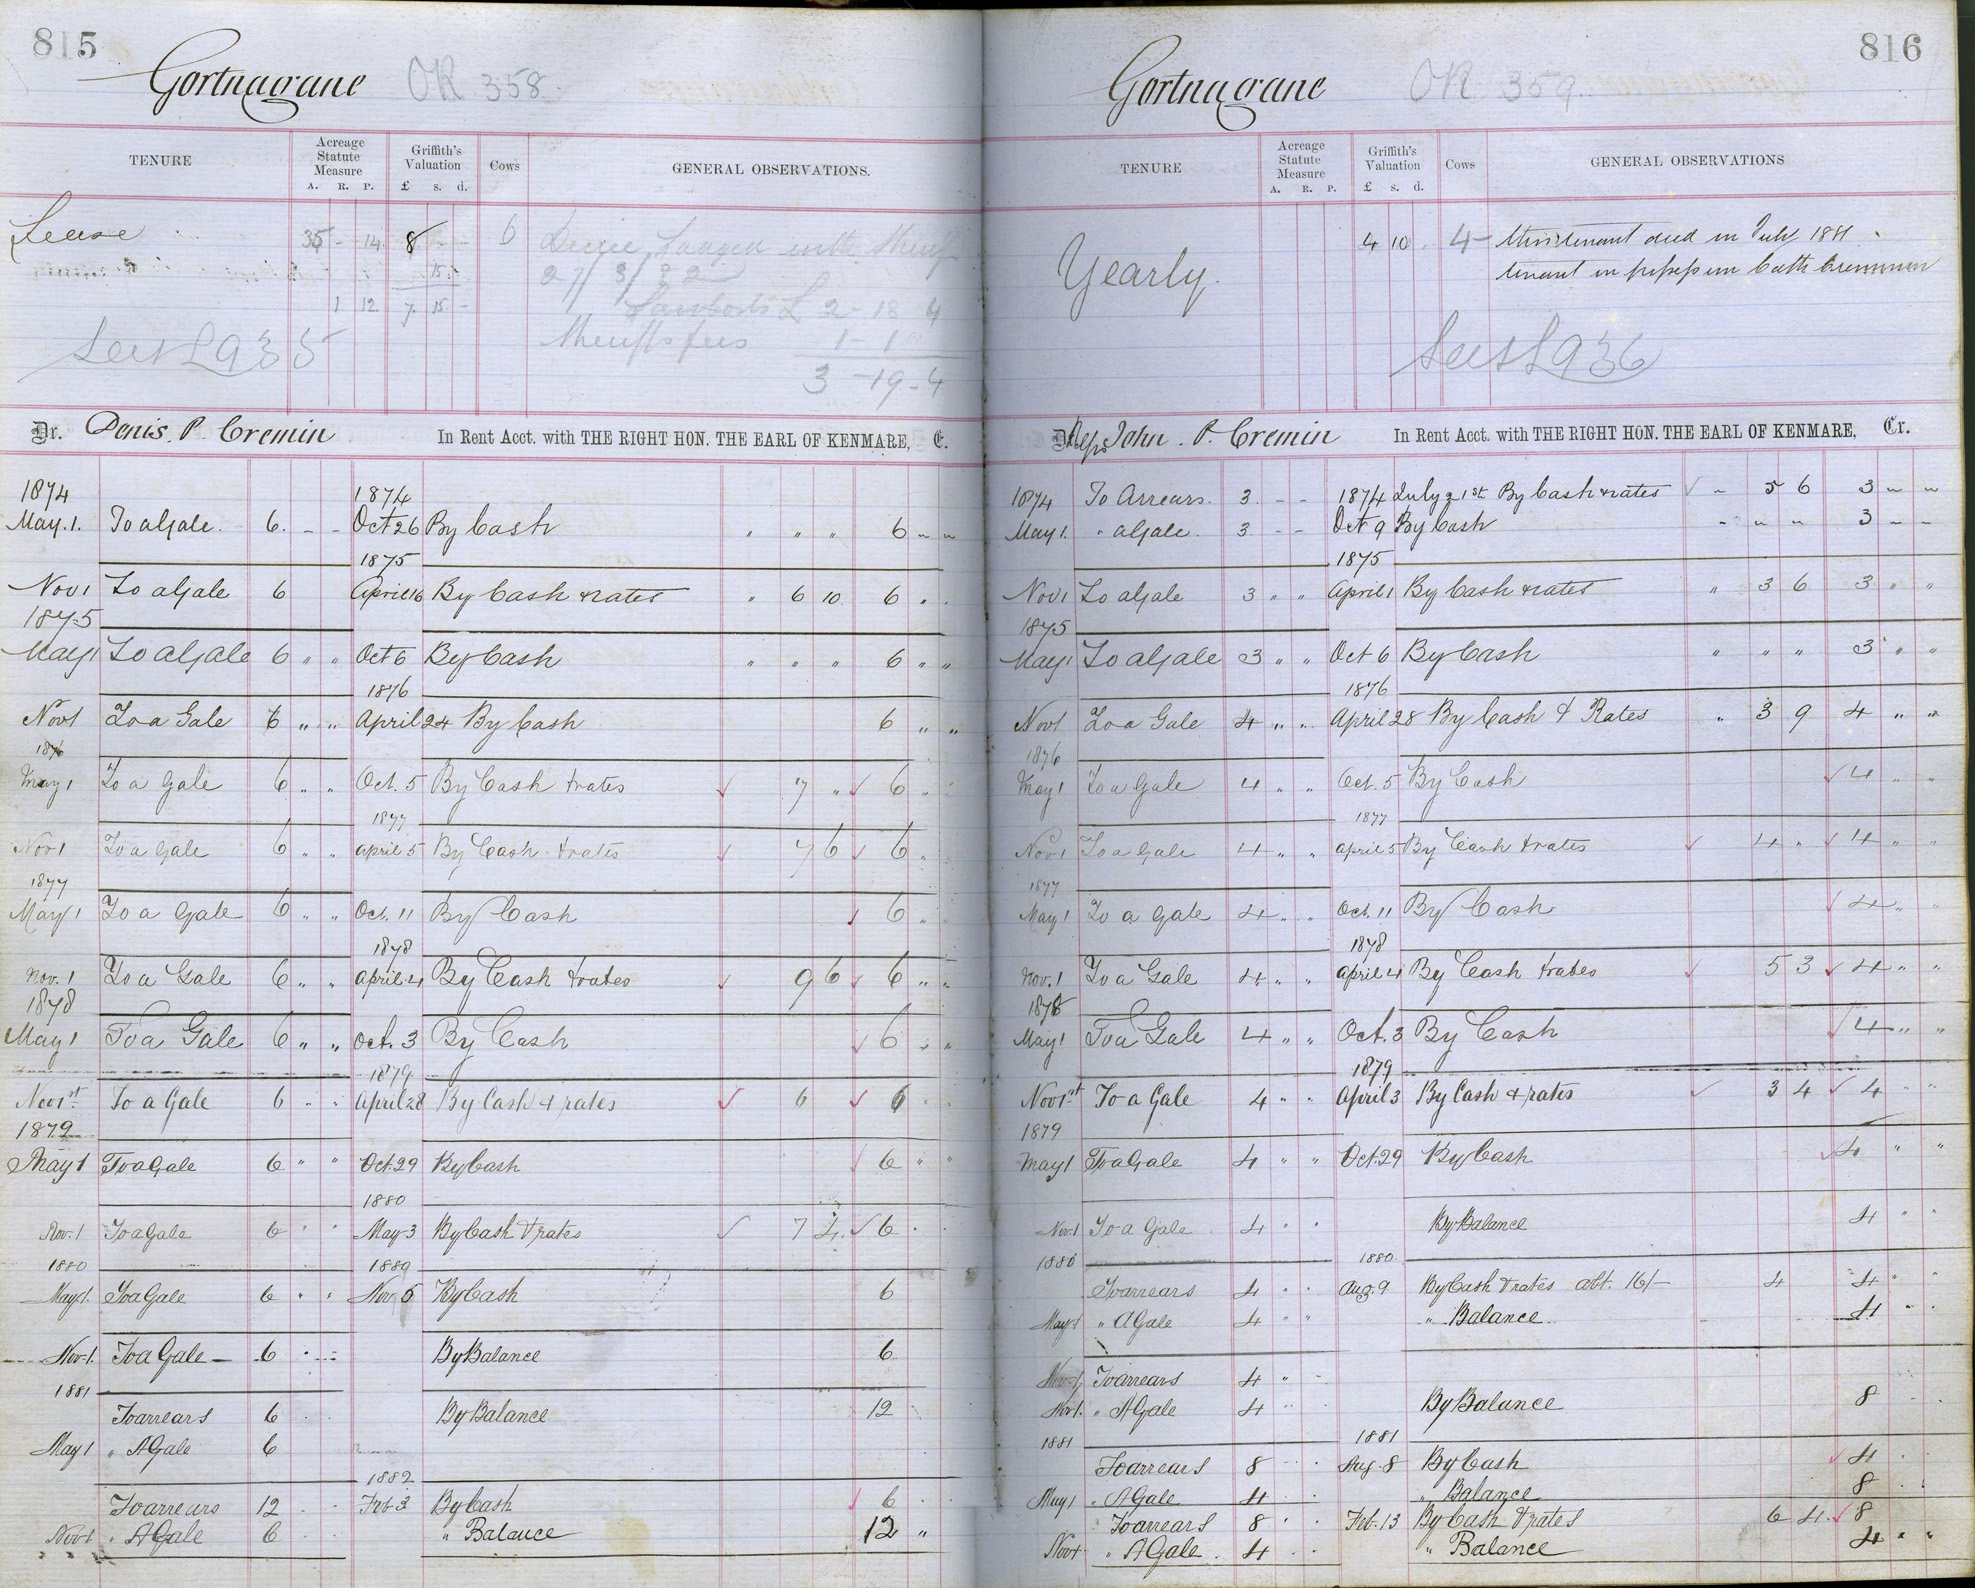 815
Gortnagane OR 358
TENURE
Acreage Statute Measure A. R. P.
Griffith's Valuation £ s. d.
Cows
GENERAL OBSERVATIONS.
Lease 35 - 14 8 - - 6 Decree lodged with Sheriff
15 27/3/82
1 12 7 15 - Law Costs £ 2-18 4
Sheriffs fees 1-1
3-19-4
See L 935
Dr. Denis. P. Cremin In Rent Acct. with THE RIGHT HON. THE EARL OF KENMARE, C.
1874 1874
May. 1. To a Gale. 6. - - Oct 26 By Cash " " " 6 " "
1875
Nov 1 To a Gale 6 April 16 By Cash & rates " 6 10 6 " .
1875
May 1 To a Gale 6 " " Oct 6 By Cash " " " 6 " "
1876
Nov 1 To a Gale 6 " " April 24 By Cash 6 " "
1876
May 1 To a Gale 6 " " Oct. 5 By Cash & rates ✓ 7 " ✓ 6 " .
1877
Nov 1 To a Gale 6 " " April 5 By Cash & rates ✓ 7 6 ✓ 6 "
1877
May 1 To a Gale 6 " " Oct. 11 By Cash ✓ 6 "
1878
Nov. 1 To a Gale 6 " " April 4 By Cash & rates ✓ 9 6 ✓ 6 " "
1878
May 1 To a Gale 6 " " Oct. 3 By Cash ✓ 6 " "
1879
Nov 1st To a Gale 6 " " April 28 By Cash & rates ✓ 6 ✓ 6
1879
May 1 To a Gale 6 " " Oct. 29 By Cash ✓ 6 " "
1880
Nov. 1 To a Gale 6 " " May 3 By Cash & rates ✓ 7 4 ✓ 6 "
1880 1880
May 1. To a Gale 6 " " Nov. 5 By Cash 6
Nov. 1. To a Gale 6 By Balance 6
1881
To arrears 6 By Balance 12
May 1 " A Gale 6
1882
To arrears 12 Feb 3 By Cash ✓ 6
Nov 1 " A Gale 6 " Balance 12 "
816
Gortnagane OR 359
TENURE
Acreage Statute Measure A. R. P.
Griffith's Valuation £ s. d.
Cows
GENERAL OBSERVATIONS
Yearly. 4 10 . 4 - this tenant died in July 1881.
tenant in possession Cath Cremin
See L 936
Dr. Reps John. P. Cremin In Rent Acct. with THE RIGHT HON. THE EARL OF KENMARE, Cr.
1874 To Arrears. 3 - - 1874 July 21st By Cash & rates ✓ " 5 6 3 " "
May 1. " a Gale. 3 - - Oct 9 By Cash " " " 3 " "
1875
Nov 1 To a Gale 3 " " April 1 By Cash & rates " 3 6 3 " "
1875
May 1 To a Gale 3 " " Oct 6 By Cash " " " 3 " "
1876
Nov 1 To a Gale 4 " " April 28 By Cash & Rates " 3 9 4 " "
1876
May 1 To a Gale 4 " " Oct. 5 By Cash ✓ 4 " "
1877
Nov 1 To a Gale 4 " " April 5 By Cash & rates ✓ 4 " ✓ 4 " "
1877
May 1 To a Gale 4 " " Oct. 11 By Cash ✓ 4 " "
1878
Nov. 1 To a Gale 4 " " April 4 By Cash & rates ✓ 5 3 ✓ 4 " "
1878
May 1 To a Gale 4 " " Oct. 3 By Cash ✓ 4 " "
1879
Nov 1st To a Gale 4 " " April 3 By Cash & rates ✓ 3 4 ✓ 4 " "
1879
May 1 To a Gale 4 " " Oct. 29 By Cash ✓ 4 " "
Nov. 1 To a Gale 4 " " By Balance 4 " "
1880 1880.
To arrears 4 " " Aug. 9 By Cash & rates abt. 16/- 4 4 " "
May 1 " A Gale 4 " " " Balance 4 " "
Nov. 1 To arrears 4 " "
Nov 1. " A Gale 4 " " By Balance 8
1881 1881
To arrears 8 Aug. 8 By Cash ✓ 4
May 1 " A Gale 4 " Balance 8
To arrears 8 Feb. 13 By Cash & rates 6 4 ✓ 8
Nov 1 " A Gale. 4 " Balance 4 " "